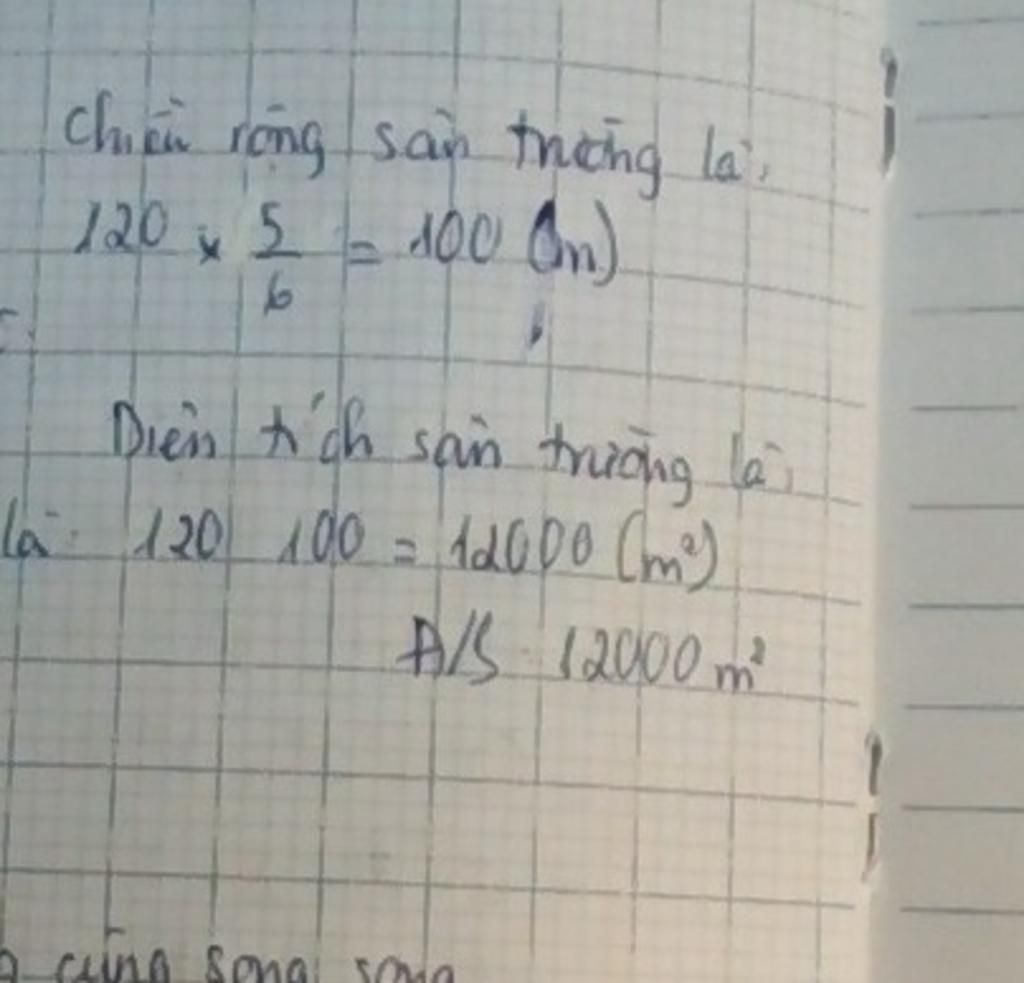 Chiều rộng sân trường là:
120 x 5/6 = 100 (m)
Diện tích sân trường là:
là: 120 100 = 12000 (m²)
Đ/S: 12000 m²
cũng song song